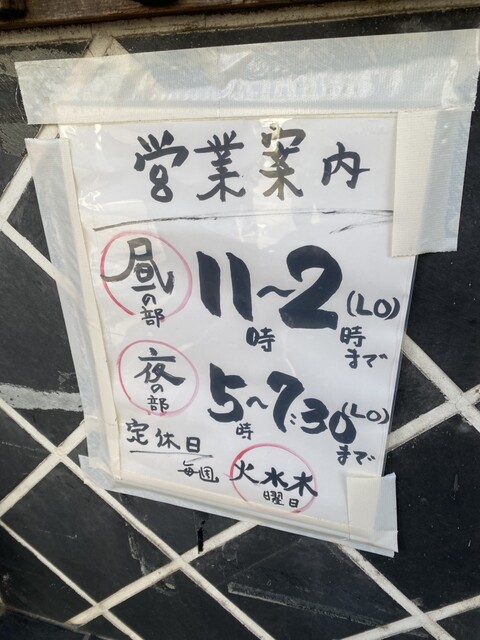 営業案内
昼の部 11時〜2時まで(LO)
夜の部 5時〜7:30まで(LO)
定休日
毎週 火水木曜日